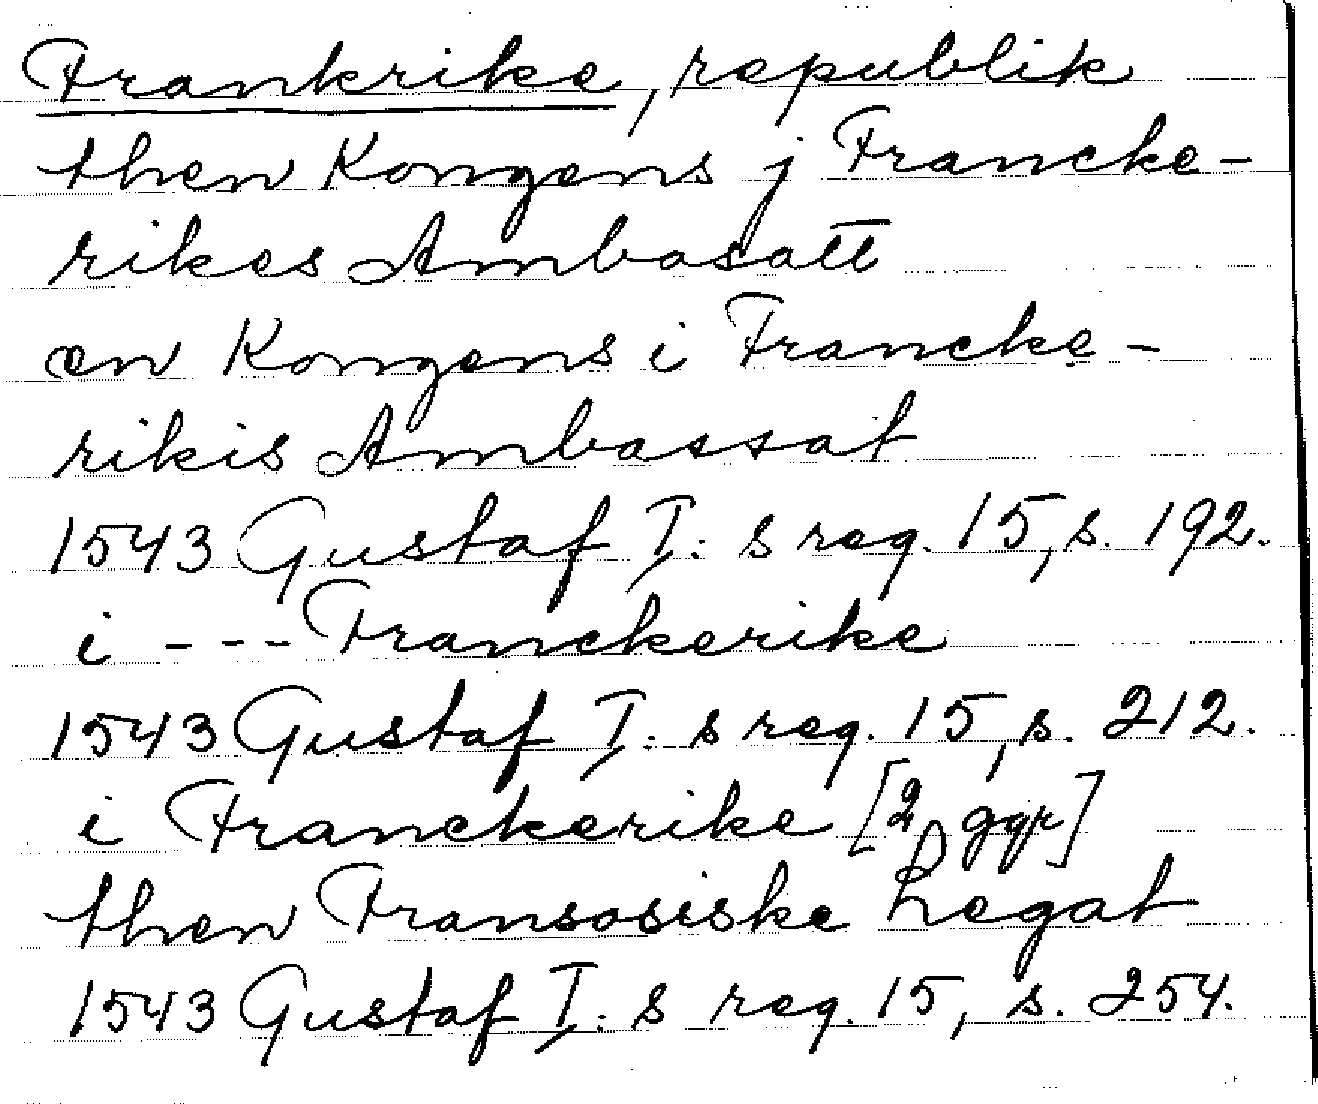 Frankrike, republik
then Kongens j Francke-
rikes Ambasatt
en Kongens i Francke-
rikis Ambassat
1543 Gustaf I: s reg. 15, s. 192.
i --- Franckerike
1543 Gustaf I: s reg. 15, s. 212.
i Franckerike [2 ggr]
then Fransosiske Legat
1543 Gustaf I: s reg. 15, s. 254.